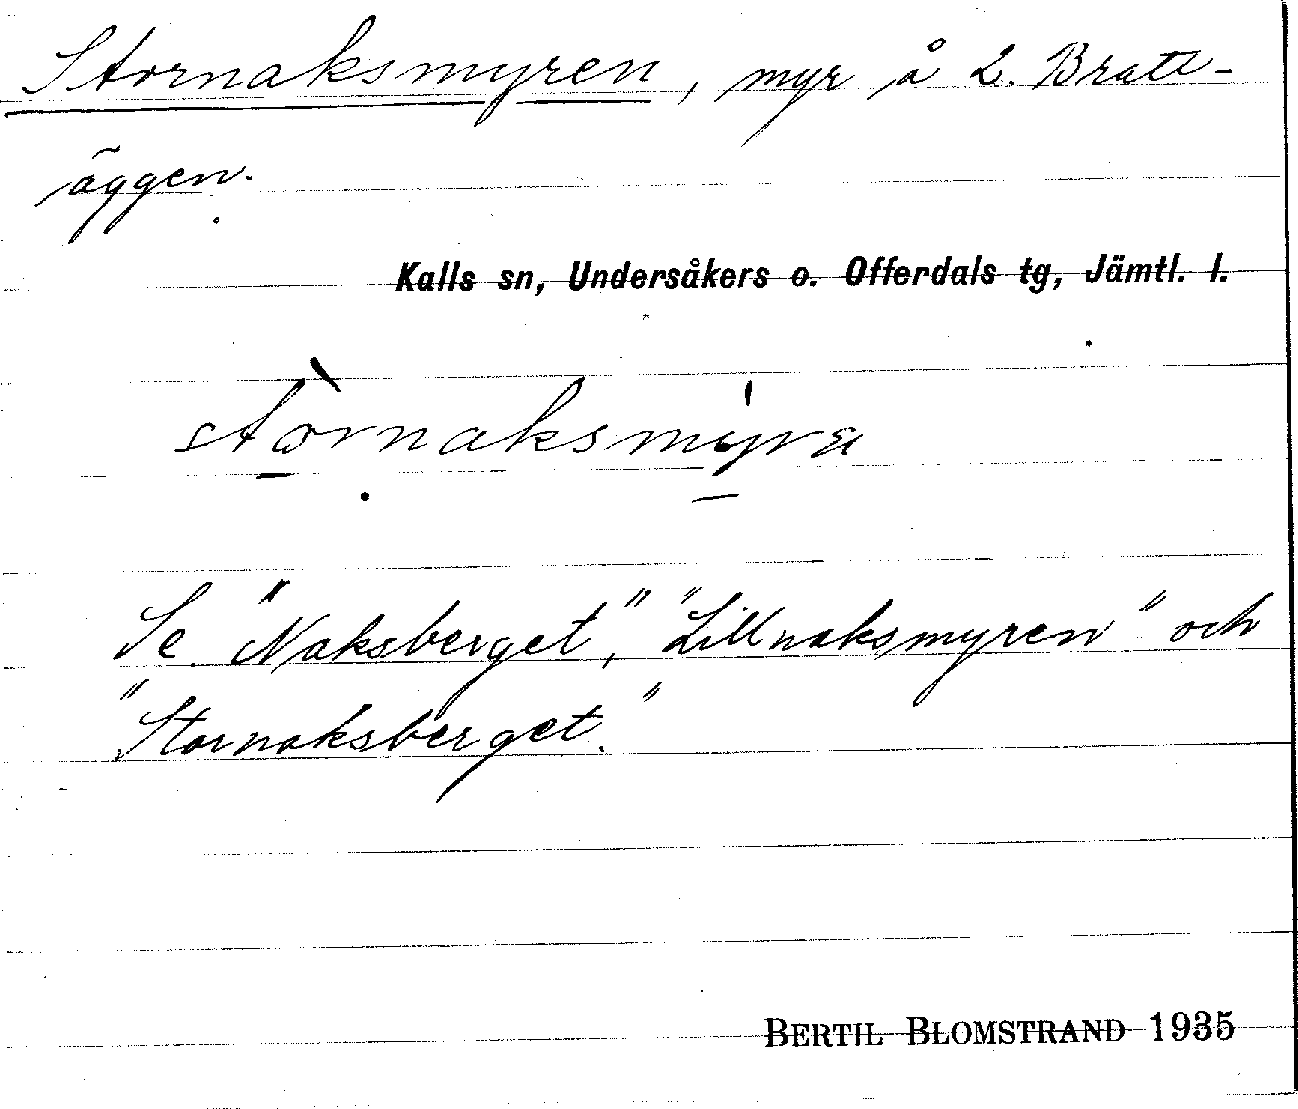 Stornaksmyren, myr å L. Bratt-
äggen.
Kalls sn, Undersåkers o. Offerdals tg, Jämtl. l.
stòrnaksmýra
Se "Naksberget", "Lillnaksmyren" och
"Stornaksberget."
BERTIL BLOMSTRAND 1935